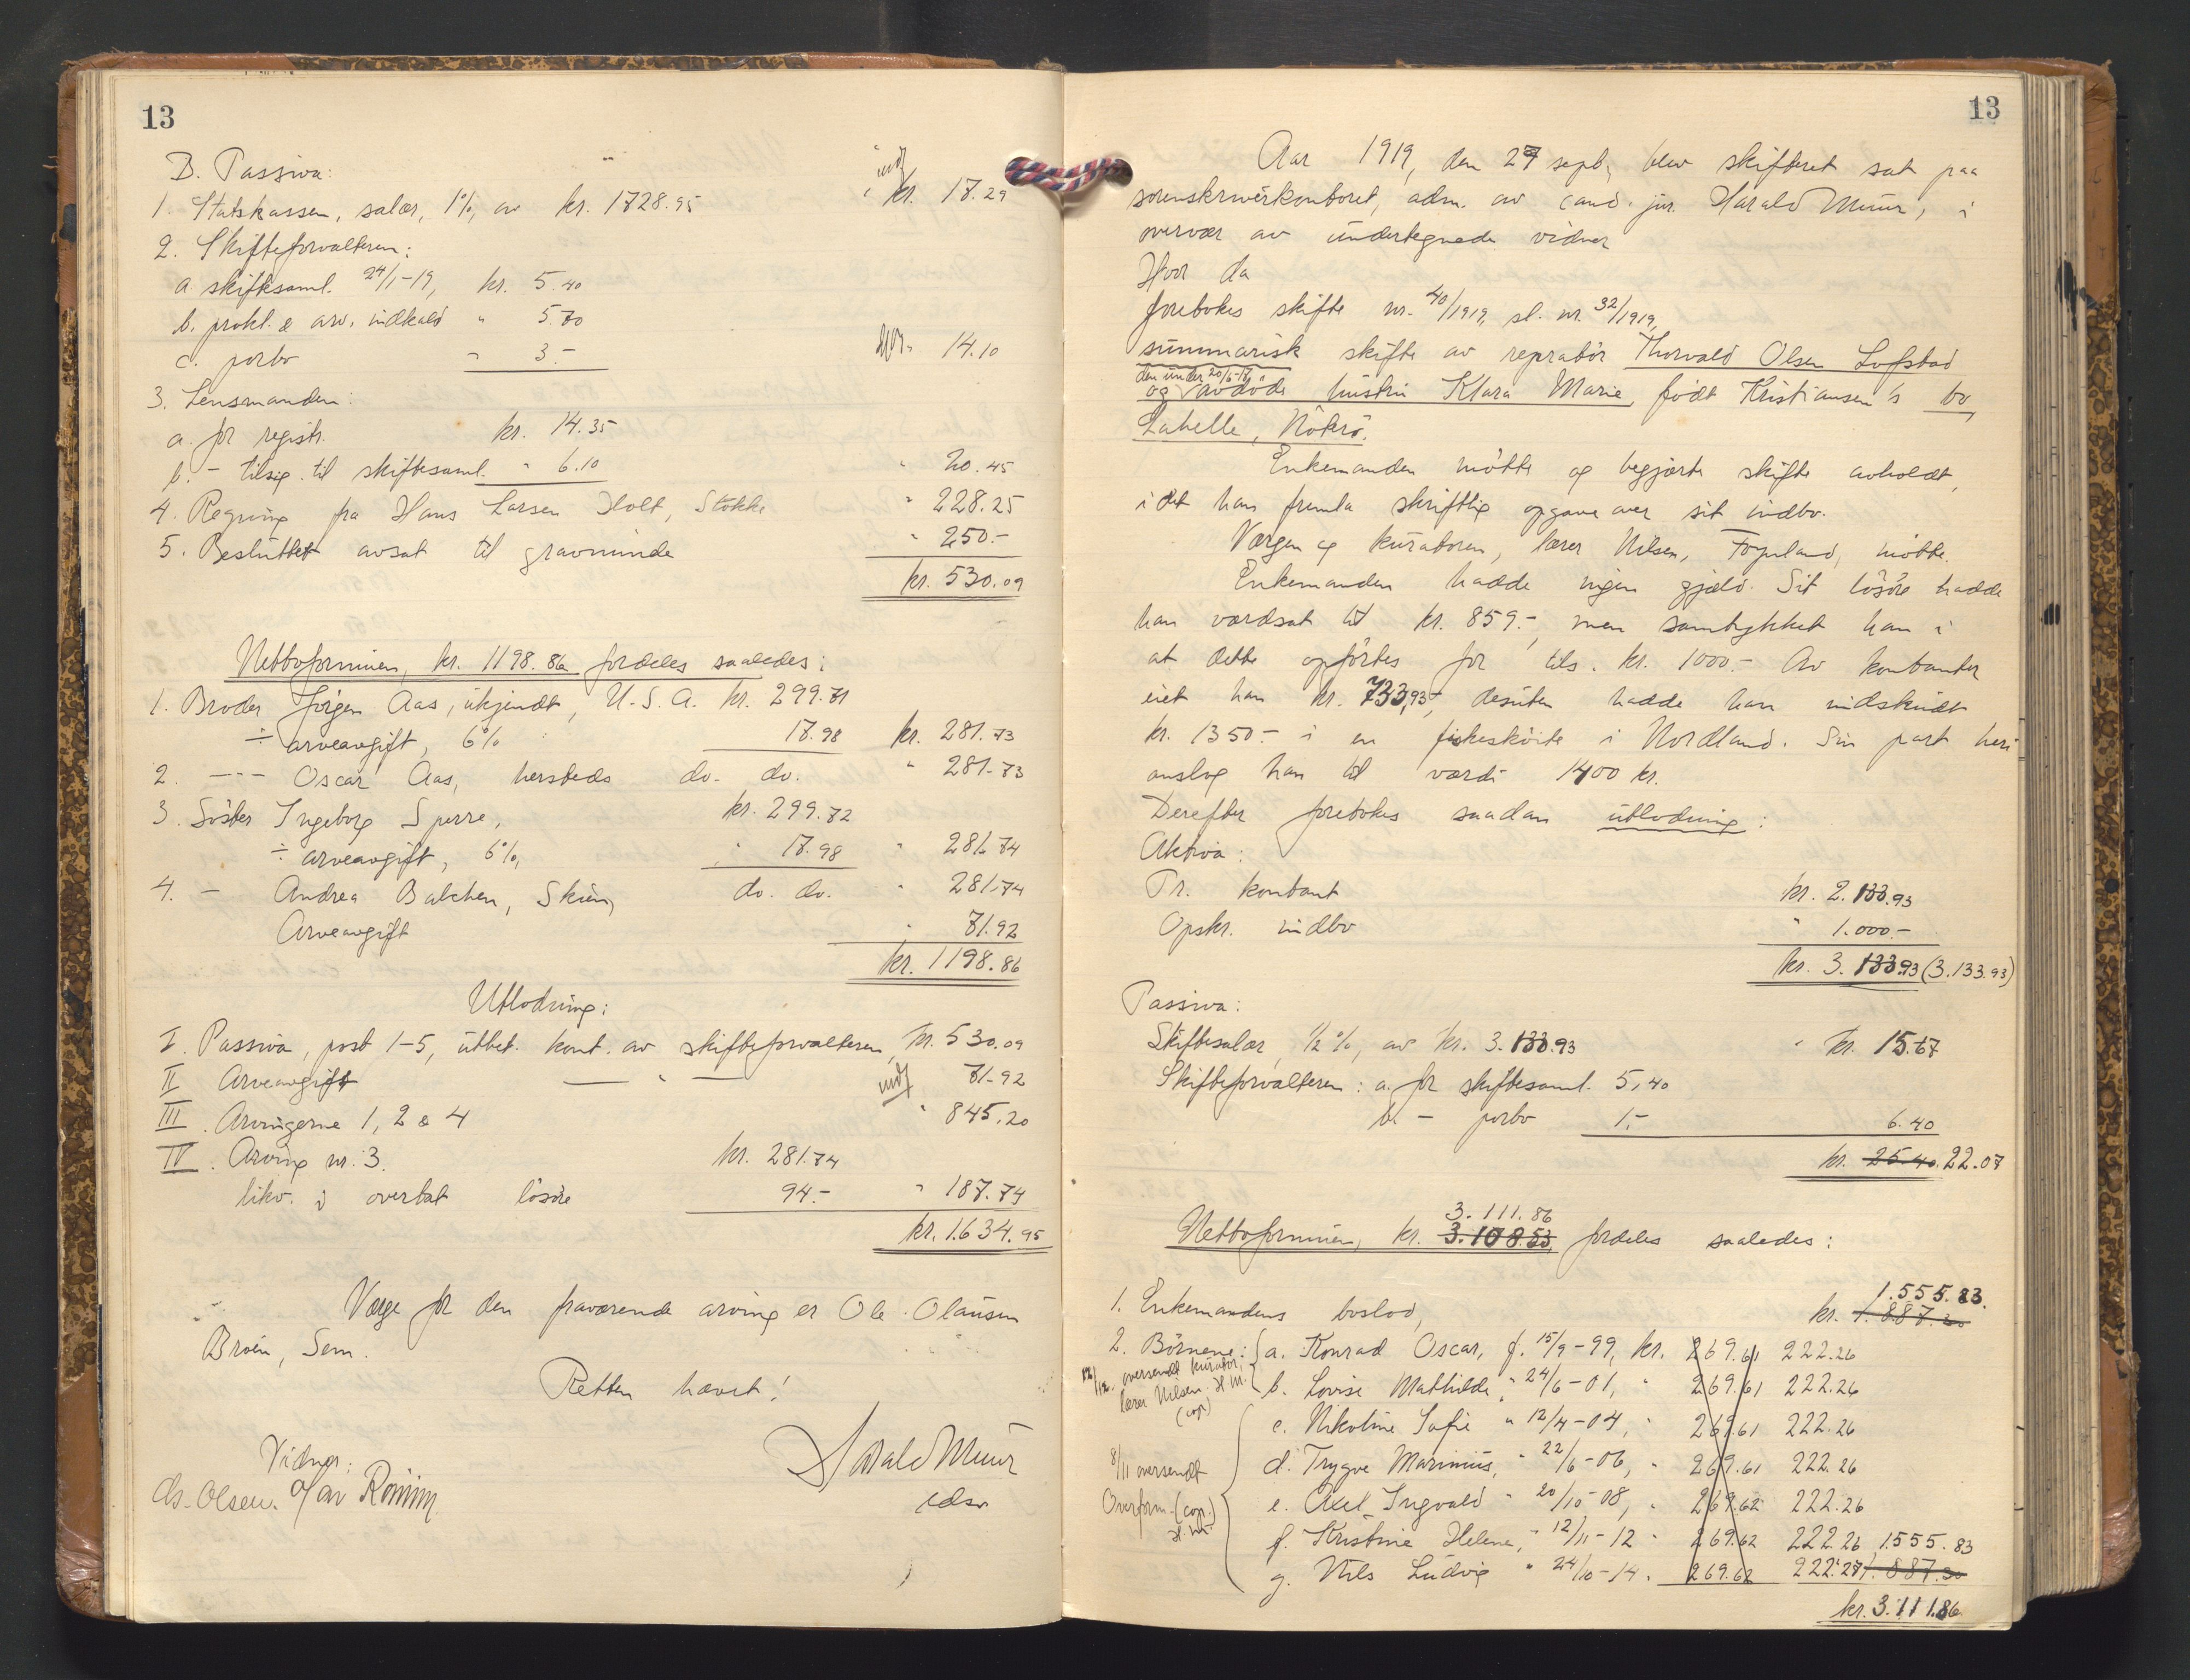 13
B. Passiva:
1. Statskassen, salær, 1%, av kr. 1728.95 kr. 17.29
2. Skifteforvalteren:
a skiftesaml. 24/1-19, kr. 5.40
b. prokl. & arv. indkald " 5.70
c. porto " 3.- 14.10
3. Lensmanden:
a. for registr. kr. 14.35
b. - tilsig. til skiftesaml. " 6.10 " 20.45
4. Regning fra Hans Larsen Holt, Stokke " 228.25
5. Besluttet avsat til gravminde " 250.-
kr. 530.09
Nettoformuen, kr. 1198.86 fordeles saaledes:
1. Broder Jørgen Aas, ukjendt, U.S.A. kr. 299.71
÷ arveavgift, 6% 17.98 kr. 281.73
2. --- Oscar Aas, hersteds do. do. " 281.73
3. Søster Ingeborg Sperre, kr. 299.72
÷ arveavgift, 6%, " 17.98 " 281.74
4. - Andrea Balchen, Skien, do. do. " 281.74
Arveavgift " 71.92
kr. 1198.86
Utlodning:
I. Passiva, post 1-5, utbet. kont. av skifteforvalteren, kr. 530.09
II Arveavgift — " — 71.92
III. Arvingerne 1, 2 & 4 " 845.20
IV. Arving nr. 3. kr. 281.74
likv. i overtat løsøre 94.- " 187.74
kr. 1.634.95
Verge for den fraværende arving er Ole Olausen
Broen, Sem.
Retten hævet!
Harald Muur
edsv
Vidner:
Olsen.
13
Aar 1919, den 27 sept, blev skifteret sat paa
sorenskriverkontoret, adm. av cand. jur. Harald Muur, i
overvær av undertegnede vidner
Hvor da
forebokes skifte nr. 40/1919, sl. nr. 32/1919,
summarisk skifte av repratør Thorvald Olsen Lofstad
den under 20/6-17
og avdøde hustru Klara Marie, født Kristiansen's bo,
Labelle, Nøtterø.
Enkemanden møtte og begjærte skifte avholdt,
i det han fremla skriftlig opgave over sit indbo.
Vergen og kuratoren, lærer Nilsen, Føynland, møtte.
Enkemanden hadde ingen gjæld. Sit løsøre hadde
han værdsat til kr. 859.-, men samtykket han i
at dette opførtes for tils. kr. 1000.- Av kontanter
eiet han kr. 733,93, desuten hadde han indskudt
kr. 1350.- i en fiskeskøite i Nordland. Sin part heri
anslog han til værdi 1400 kr.
Derefter forebokes saadan utlodning:
Aktiva:
Pr. kontant kr. 2.133.93
Opskr. indbo " 1.000.-
kr. 3.133.93 (3.133.93)
Passiva:
Skiftesalær, 1/2 %, av kr. 3.133.93 " kr. 15.67
Skifteforvalteren: a. for skiftesaml. 5,40
b. - porto 1.- 6.40
kr. 25.40. 22.07
3.111.86
Nettoformuen, kr. 3.108.53 fordeles saaledes:
1.555.83.
1. Enkemandens boslod, kr. 1.887.30
2. Børnene: a. Konrad Oscar, f. 15/9-99, kr. 269.61 222.26
12/12. oversendt kurator,
lærer Nilsen. H.M.
(cop)
b. Lovise Mathilde, " 24/6-01, " 269.61 222.26
c. Nikoline Sofie " 12/4-04, " 269.61 222.26
d. Trygve Marinius, " 22/6-06, " 269.61 222.26
8/11 oversendt
Overform. (cop.)
H.M.
e. Axel Ingvald " 20/10-08, " 269.62 222.26
f. Kristine Helene, " 12/11-12 " 269.62 222.26 1.555.83
g. Nils Ludvig " 24/10-14 " 269.62 222.27 1.887.30
kr. 3.111.86